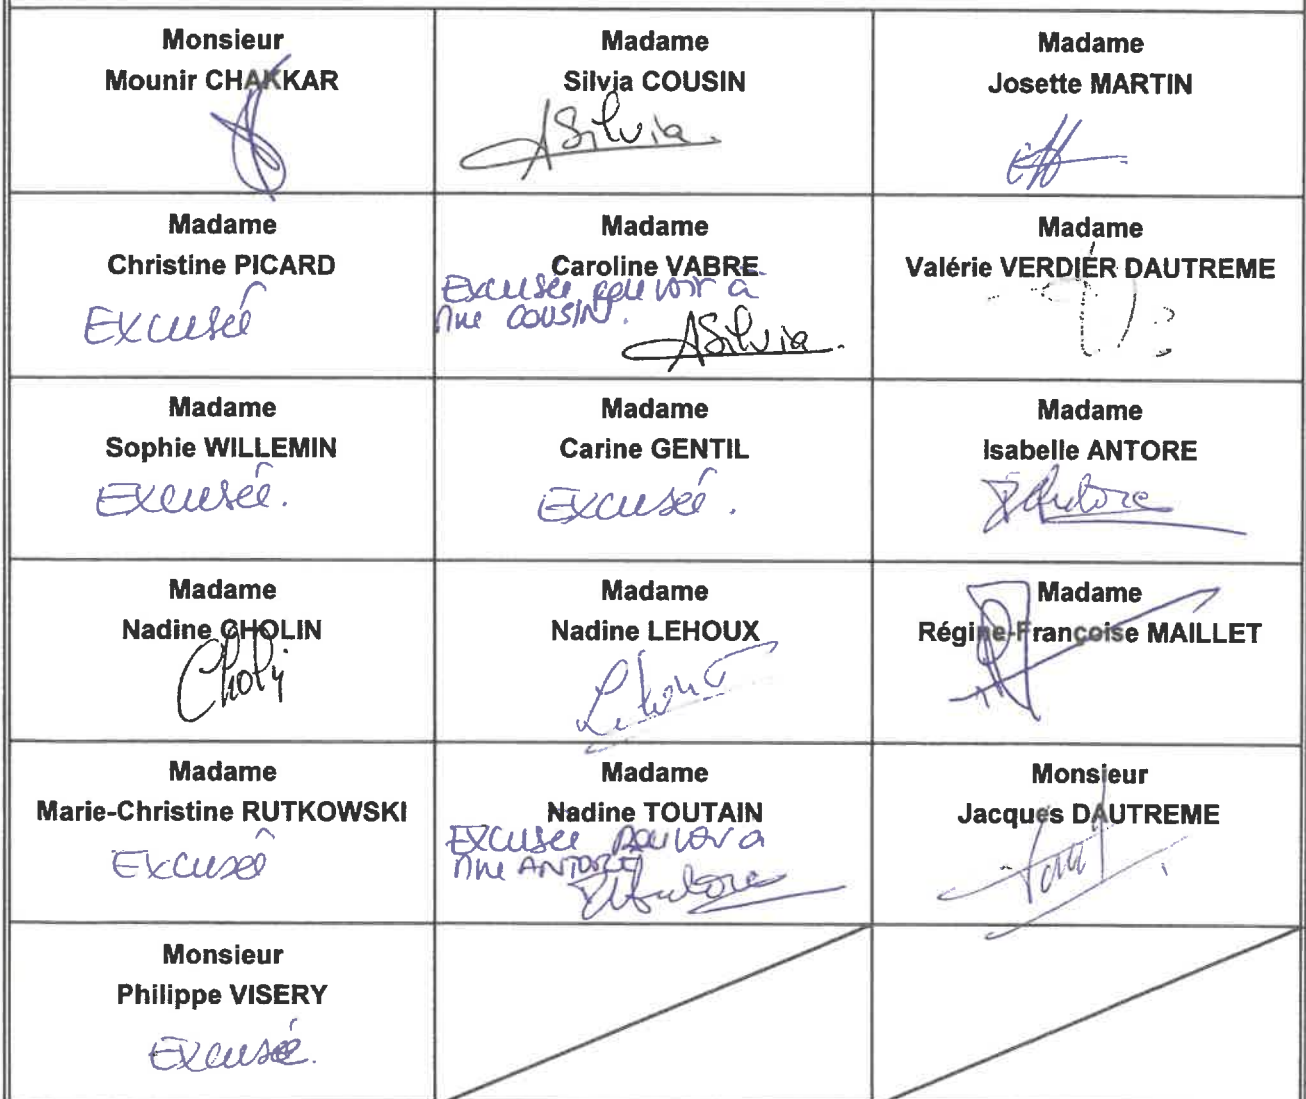 Monsieur
Mounir CHAKKAR
Madame
Silvia COUSIN
Silvia
Madame
Josette MARTIN
Madame
Christine PICARD
Excusée
Madame
Caroline VABRE
Excusée, pouvoir à
Mme COUSIN.
Silvia
Madame
Valérie VERDIER DAUTREME
Madame
Sophie WILLEMIN
Excusée.
Madame
Carine GENTIL
Excusée.
Madame
Isabelle ANTORE
Antore
Madame
Nadine CHOLIN
Choli
Madame
Nadine LEHOUX
Lehoux
Madame
Régine-Françoise MAILLET
Madame
Marie-Christine RUTKOWSKI
Excusée
Madame
Nadine TOUTAIN
Excusée pouvoir à
Mme ANTORE
Antore
Monsieur
Jacques DAUTREME
Monsieur
Philippe VISERY
Excusée.